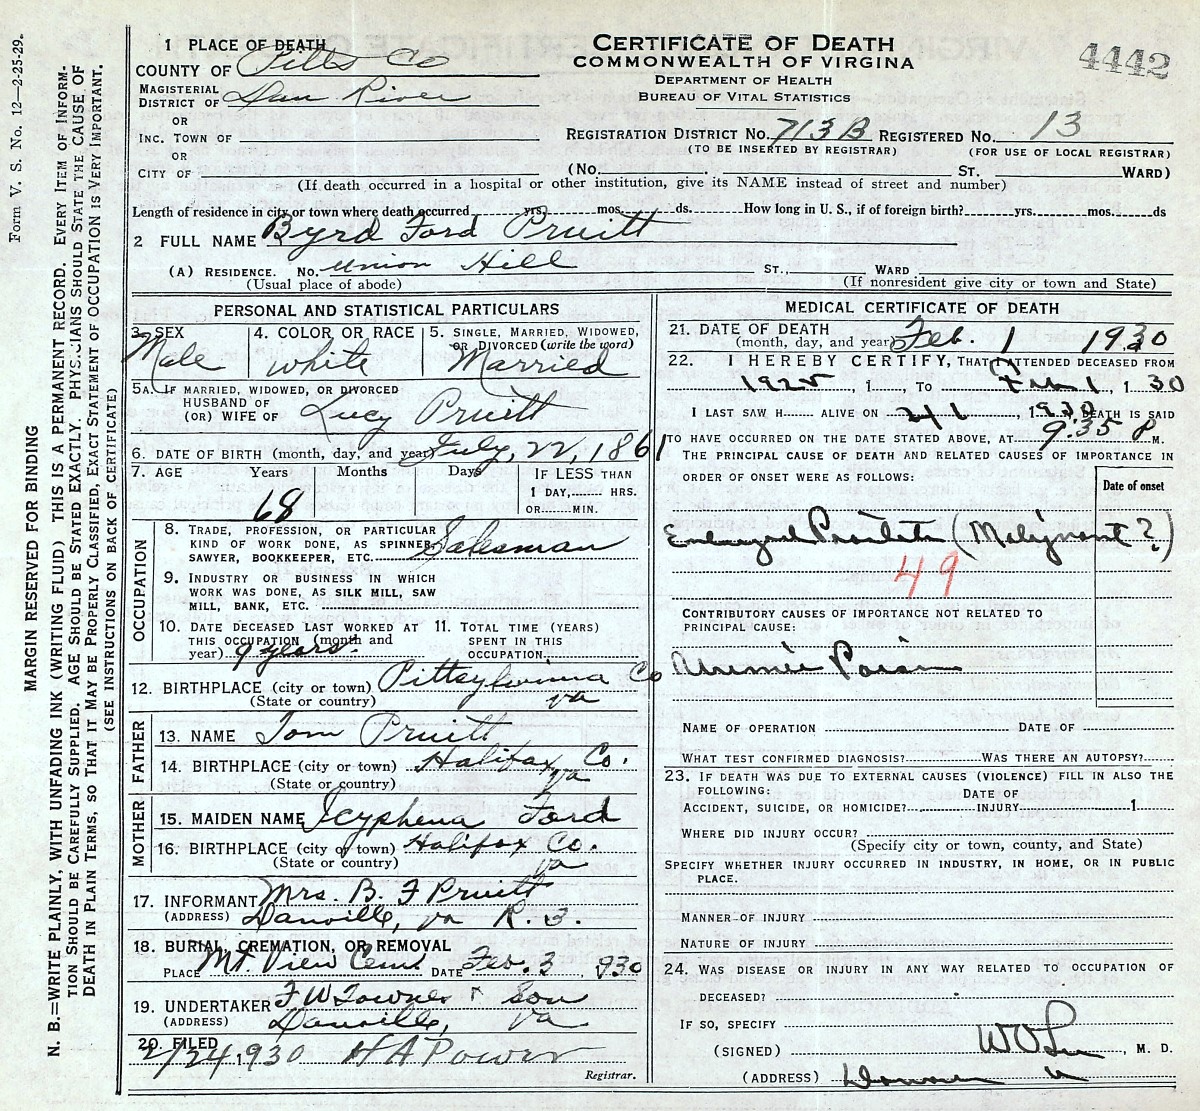 Form V. S. No. 12—2-25-29.
MARGIN RESERVED FOR BINDING
N. B.—WRITE PLAINLY, WITH UNFADING INK (WRITING FLUID) THIS IS A PERMANENT RECORD. EVERY ITEM OF INFORM-
TION SHOULD BE CAREFULLY SUPPLIED. AGE SHOULD BE STATED EXACTLY. PHYSICIANS SHOULD STATE THE CAUSE OF
DEATH IN PLAIN TERMS, SO THAT IT MAY BE PROPERLY CLASSIFIED. EXACT STATEMENT OF OCCUPATION IS VERY IMPORTANT.
(SEE INSTRUCTIONS ON BACK OF CERTIFICATE)
1 PLACE OF DEATH
COUNTY OF Pitts Co
MAGISTERIAL
DISTRICT OF Dan River
OR
INC. TOWN OF
OR
CITY OF
CERTIFICATE OF DEATH
COMMONWEALTH OF VIRGINIA
DEPARTMENT OF HEALTH
BUREAU OF VITAL STATISTICS
4442
REGISTRATION DISTRICT NO. 713B REGISTERED NO. 13
(TO BE INSERTED BY REGISTRAR) (FOR USE OF LOCAL REGISTRAR)
(NO. ST. WARD)
(If death occurred in a hospital or other institution, give its NAME instead of street and number)
Length of residence in city or town where death occurred yrs. mos. ds. How long in U. S., if of foreign birth? yrs. mos. ds
2 FULL NAME Byrd Ford Pruitt
(A) RESIDENCE. NO. Union Hill ST., WARD
(Usual place of abode) (If nonresident give city or town and State)
PERSONAL AND STATISTICAL PARTICULARS
3. SEX Male
4. COLOR OR RACE white
5. SINGLE, MARRIED, WIDOWED,
OR DIVORCED (write the word)
Married
5A. IF MARRIED, WIDOWED, OR DIVORCED
HUSBAND OF
(OR) WIFE OF Lucy Pruitt
6. DATE OF BIRTH (month, day, and year) July, 22, 1861
7. AGE Years Months Days IF LESS THAN
1 DAY, HRS.
OR MIN.
68
OCCUPATION
8. TRADE, PROFESSION, OR PARTICULAR
KIND OF WORK DONE, AS SPINNER,
SAWYER, BOOKKEEPER, ETC. Salesman
9. INDUSTRY OR BUSINESS IN WHICH
WORK WAS DONE, AS SILK MILL, SAW
MILL, BANK, ETC.
10. DATE DECEASED LAST WORKED AT
THIS OCCUPATION (month and
year) 9 years.
11. TOTAL TIME (YEARS)
SPENT IN THIS
OCCUPATION
12. BIRTHPLACE (city or town) Pittsylvinia Co
(State or country) va
FATHER
13. NAME Tom Pruitt
14. BIRTHPLACE (city or town) Halifax Co.
(State or country) va
MOTHER
15. MAIDEN NAME Icyphena Ford
16. BIRTHPLACE (city or town) Halifax Co.
(State or country) va
17. INFORMANT Mrs. B. F Pruitt
(ADDRESS) Danville, va R. 3.
18. BURIAL, CREMATION, OR REMOVAL
PLACE Mt. View Cem. DATE Feb. 3 1930
19. UNDERTAKER F W Townes & Son
(ADDRESS) Danville, va
20. FILED
2/24 1930 H A Power
Registrar.
MEDICAL CERTIFICATE OF DEATH
21. DATE OF DEATH
(month, day, and year) Feb. 1 1930
22. I HEREBY CERTIFY, THAT I ATTENDED DECEASED FROM
1925, 1 , TO Feb 1, 1 30
I LAST SAW H ALIVE ON 2/1, 1930 DEATH IS SAID
TO HAVE OCCURRED ON THE DATE STATED ABOVE, AT 9:35 P M.
THE PRINCIPAL CAUSE OF DEATH AND RELATED CAUSES OF IMPORTANCE IN
ORDER OF ONSET WERE AS FOLLOWS:
Date of onset
Enlarged Prostate (Malignant?)
49
CONTRIBUTORY CAUSES OF IMPORTANCE NOT RELATED TO
PRINCIPAL CAUSE:
Uremic Poison
NAME OF OPERATION DATE OF
WHAT TEST CONFIRMED DIAGNOSIS? WAS THERE AN AUTOPSY?
23. IF DEATH WAS DUE TO EXTERNAL CAUSES (VIOLENCE) FILL IN ALSO THE
FOLLOWING: DATE OF
ACCIDENT, SUICIDE, OR HOMICIDE? INJURY 1
WHERE DID INJURY OCCUR?
(Specify city or town, county, and State)
SPECIFY WHETHER INJURY OCCURRED IN INDUSTRY, IN HOME, OR IN PUBLIC
PLACE.
MANNER OF INJURY
NATURE OF INJURY
24. WAS DISEASE OR INJURY IN ANY WAY RELATED TO OCCUPATION OF
DECEASED?
IF SO, SPECIFY
(SIGNED) , M. D.
(ADDRESS)